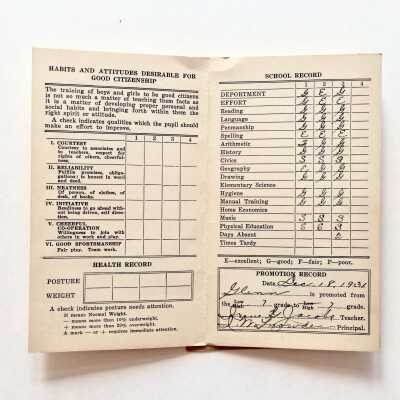 HABITS AND ATTITUDES DESIRABLE FOR
GOOD CITIZENSHIP
The training of boys and girls to be good citizens
is not so much a matter of teaching them facts as
it is a matter of developing proper personal and
social habits and bringing forth within them the
right spirit or attitude.
A check indicates qualities which the pupil should
make an effort to improve.
1 2 3 4
I. COURTESY
Courtesy to associates and
to teachers, respect for
rights of others, cheerful-
ness.
II. RELIABILITY
Fulfils promises, obliga-
tions; is honest in word
and deed.
III. NEATNESS
Of person, of clothes, of
desk, of books.
IV. INITIATIVE
Readiness to go ahead with-
out being driven, self direc-
tion.
V. CHEERFUL
CO-OPERATION
Willingness to join with
others in work and play.
VI. GOOD SPORTSMANSHIP
Fair play. Team work.
HEALTH RECORD
POSTURE
WEIGHT
A check indicates posture needs attention.
N means Normal Weight.
— means more than 10% underweight.
+ means more than 20% overweight.
A mark — or + requires immediate attention.
SCHOOL RECORD
1 2 3 4
DEPORTMENT G E G
EFFORT G E E
Reading G G G
Language G G G
Penmanship G G G
Spelling E E E
Arithmetic G G
History G G G
Civics S S S
Geography G G
Drawing G G G
Elementary Science
Hygiene G G G
Manual Training G G G
Home Economics
Music S S S
Physical Education S S S
Days Absent 2
Times Tardy
E—excellent; G—good; F—fair; P—poor.
PROMOTION RECORD
Date Dec. 18, 193
Glenn is promoted from
the low high 7 grade to low high 7 grade
Irene Jacobs Teacher.
Principal.